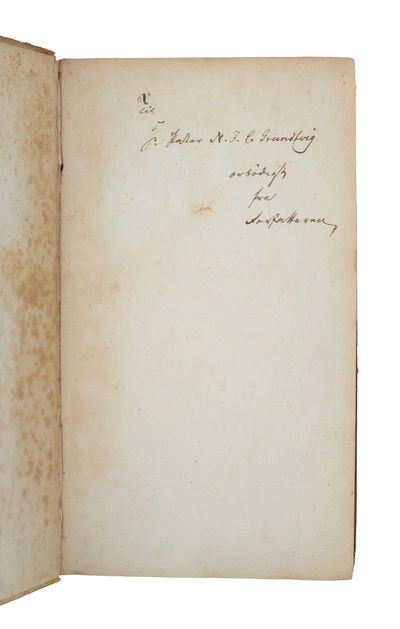 til
Hr. Pastor N. F. S. Grundtvig
ærbødigst
fra
Forfatteren